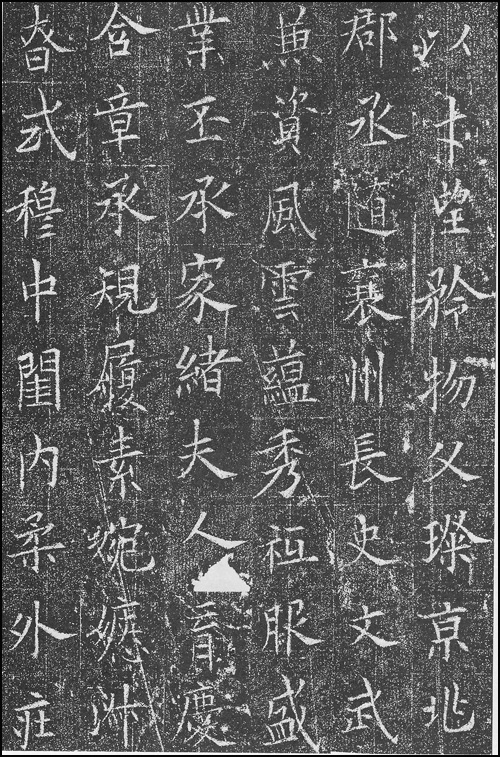 以才望矜物父璨京兆
郡丞襄州長史文武
兼資風雲蘊秀祗服盛
業丕承家緒夫人育慶
含章承規履素婉嫕淑
眘式穆中閨内柔外庄